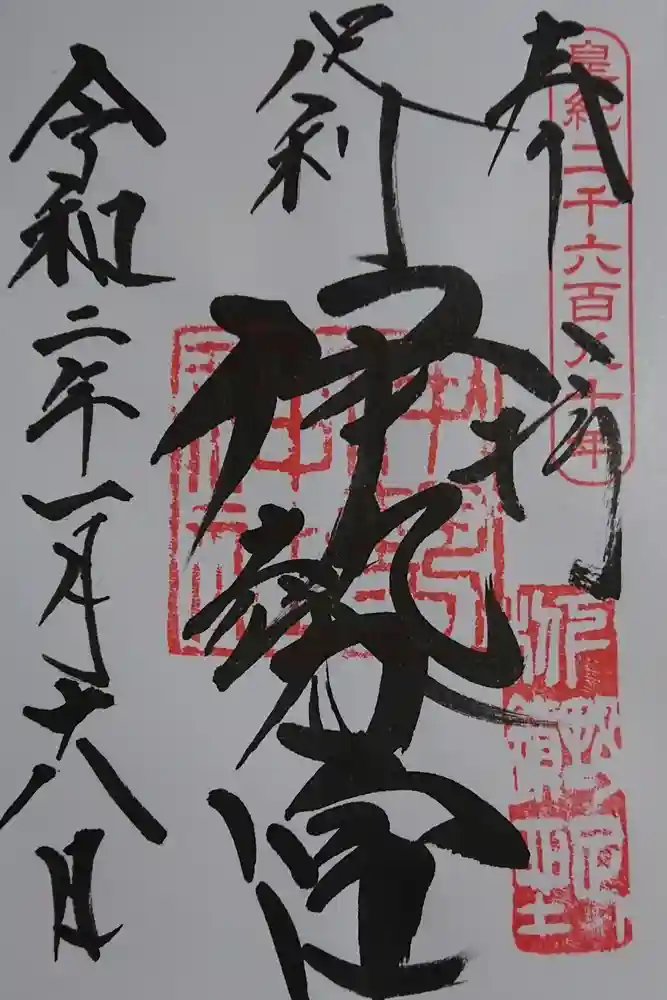 皇紀二千六百八十年
奉拝
足利
伊勢宮
伊勢神社
令和二年一月十八日